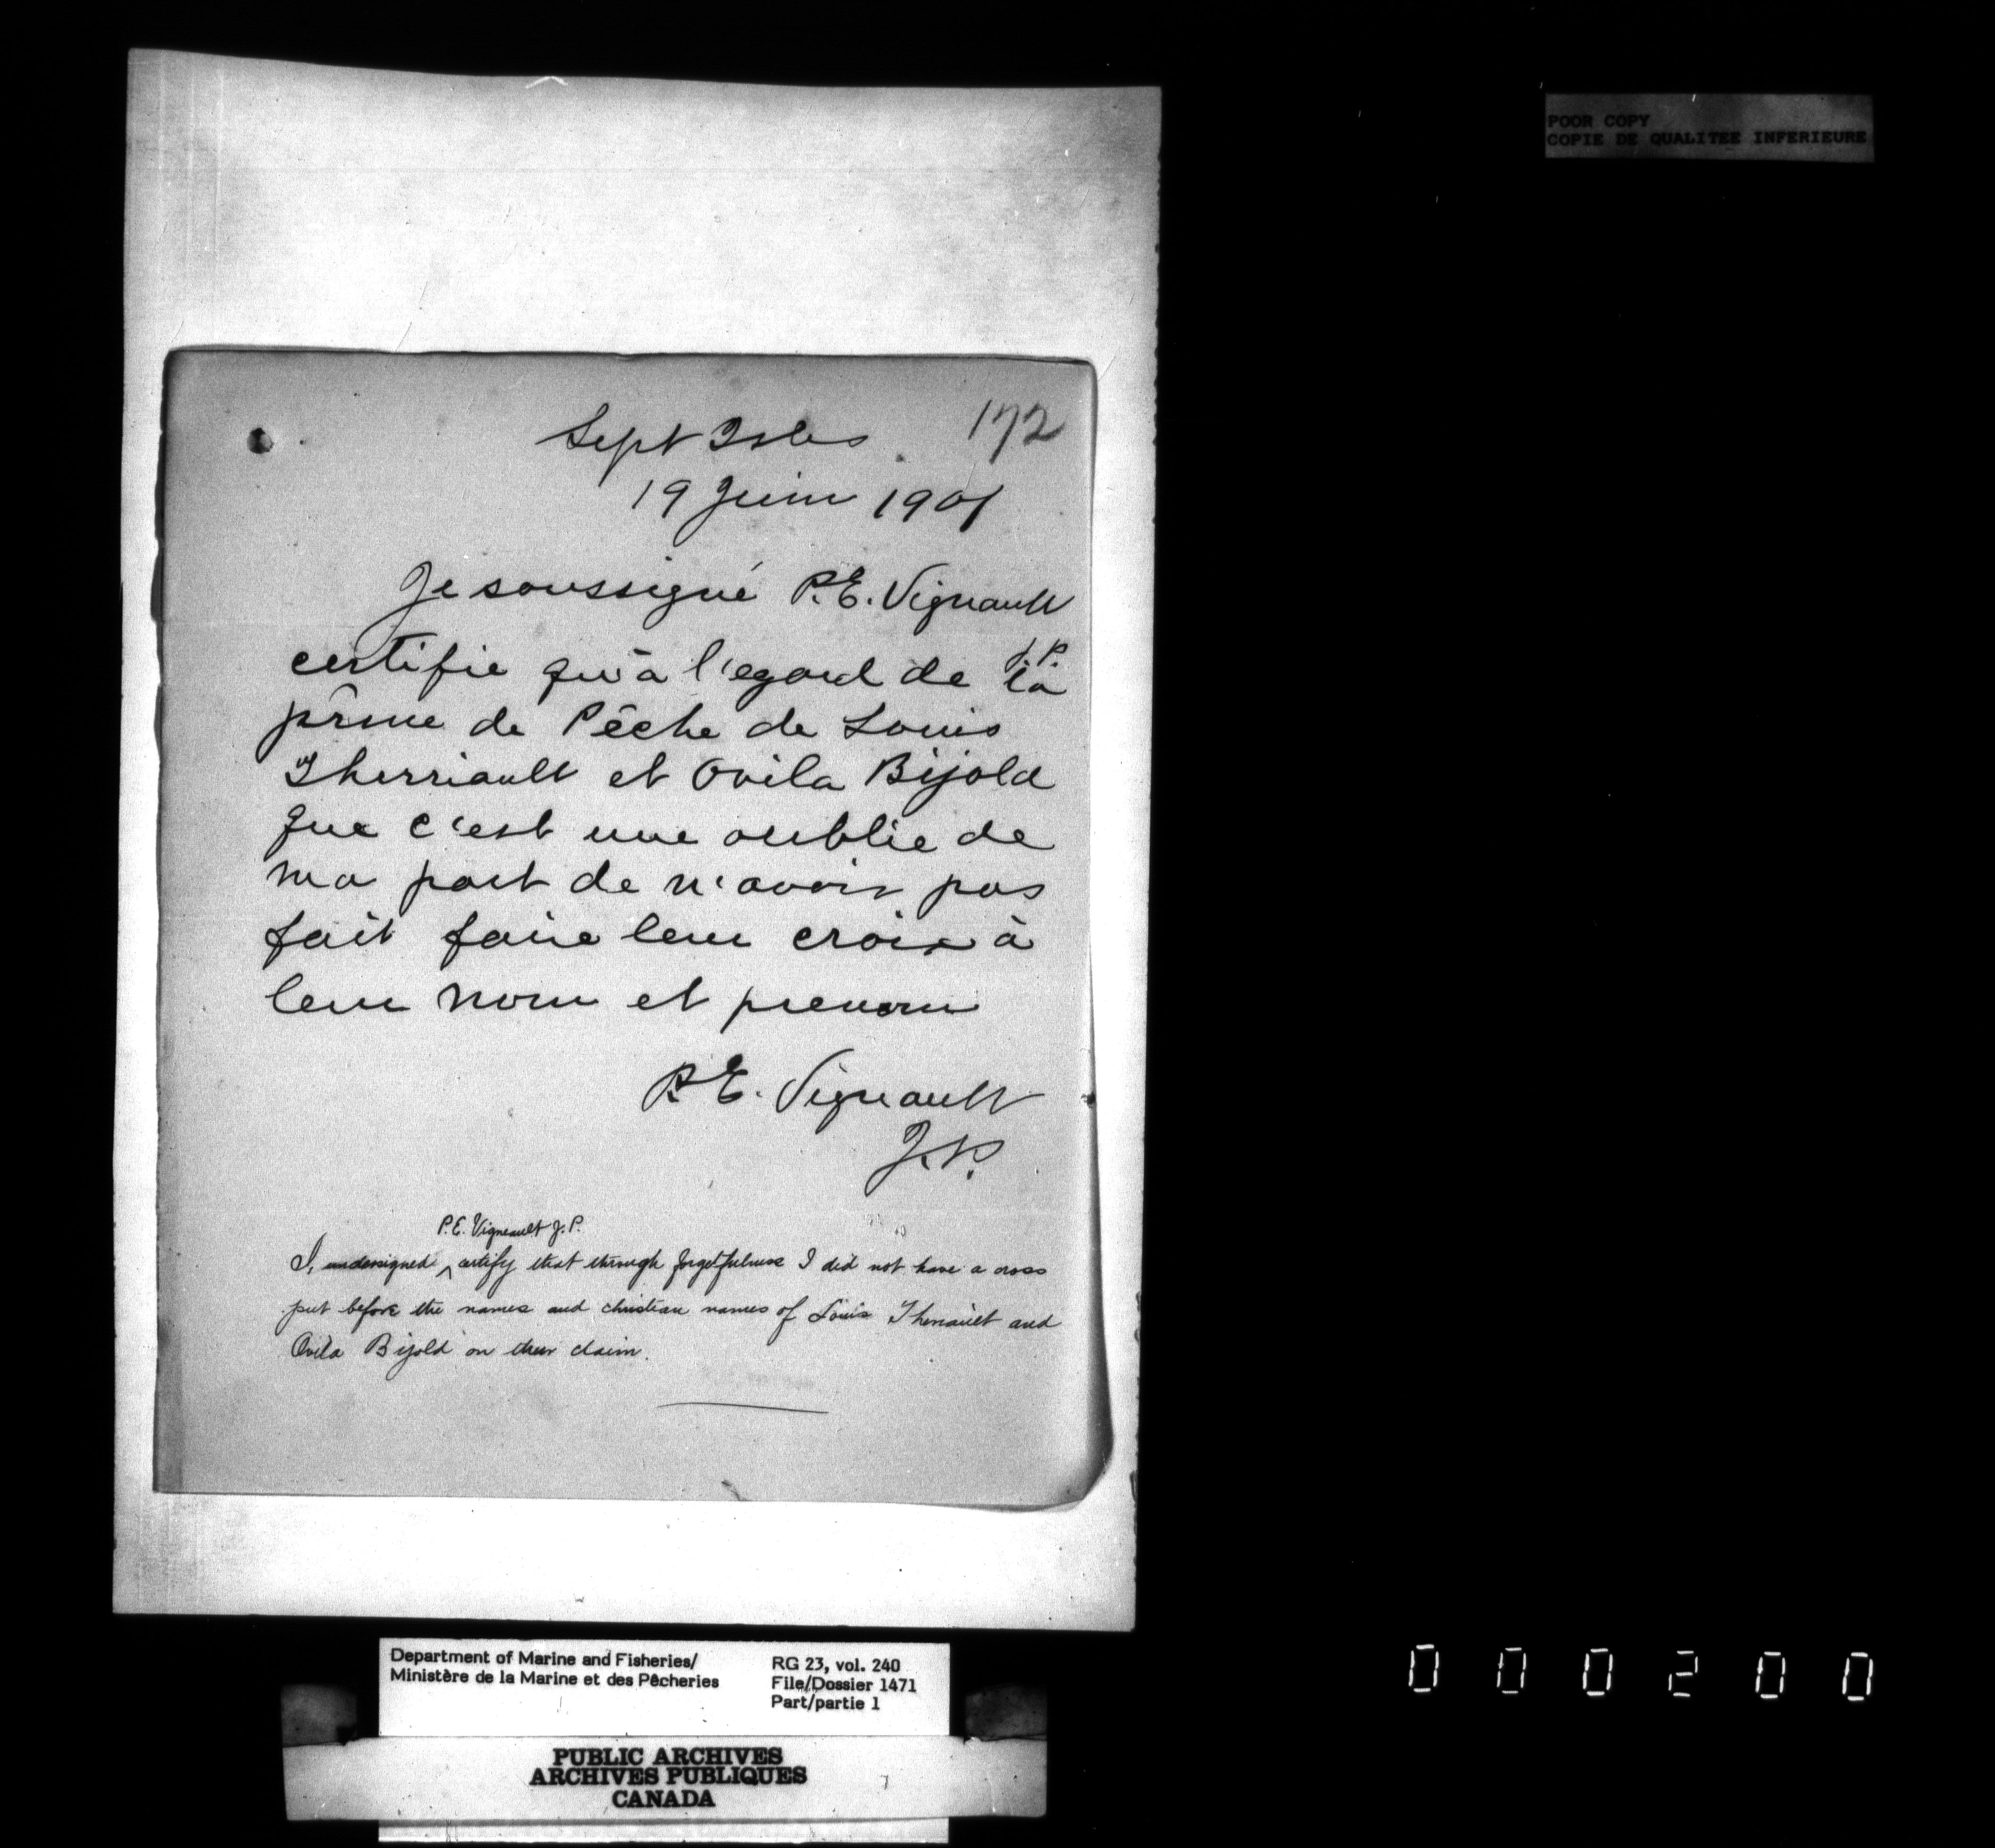 POOR COPY
COPIE DE QUALITEE INFERIEURE
172
Sept Isles
19 Juin 1901
Je soussigné P.E. Vignault
J.P.
certifie qu'à l'egard de la
prime de Pêche de Louis
Therriault et Ovila Bijold
que c'est une oublie de
ma part de n'avoir pas
fait faire leur croix à
leur nom et prenom
P.E. Vignault
J.P.
P.E. Vigneault J.P.
I, undersigned ^ certify that through forgetfulness I did not have a cross
put before the names and christian names of Louis Therriault and
Ovila Bijold on their claim.
Department of Marine and Fisheries/
Ministère de la Marine et des Pêcheries
RG 23, vol. 240
File/Dossier 1471
Part/partie 1
PUBLIC ARCHIVES
ARCHIVES PUBLIQUES
CANADA
000200